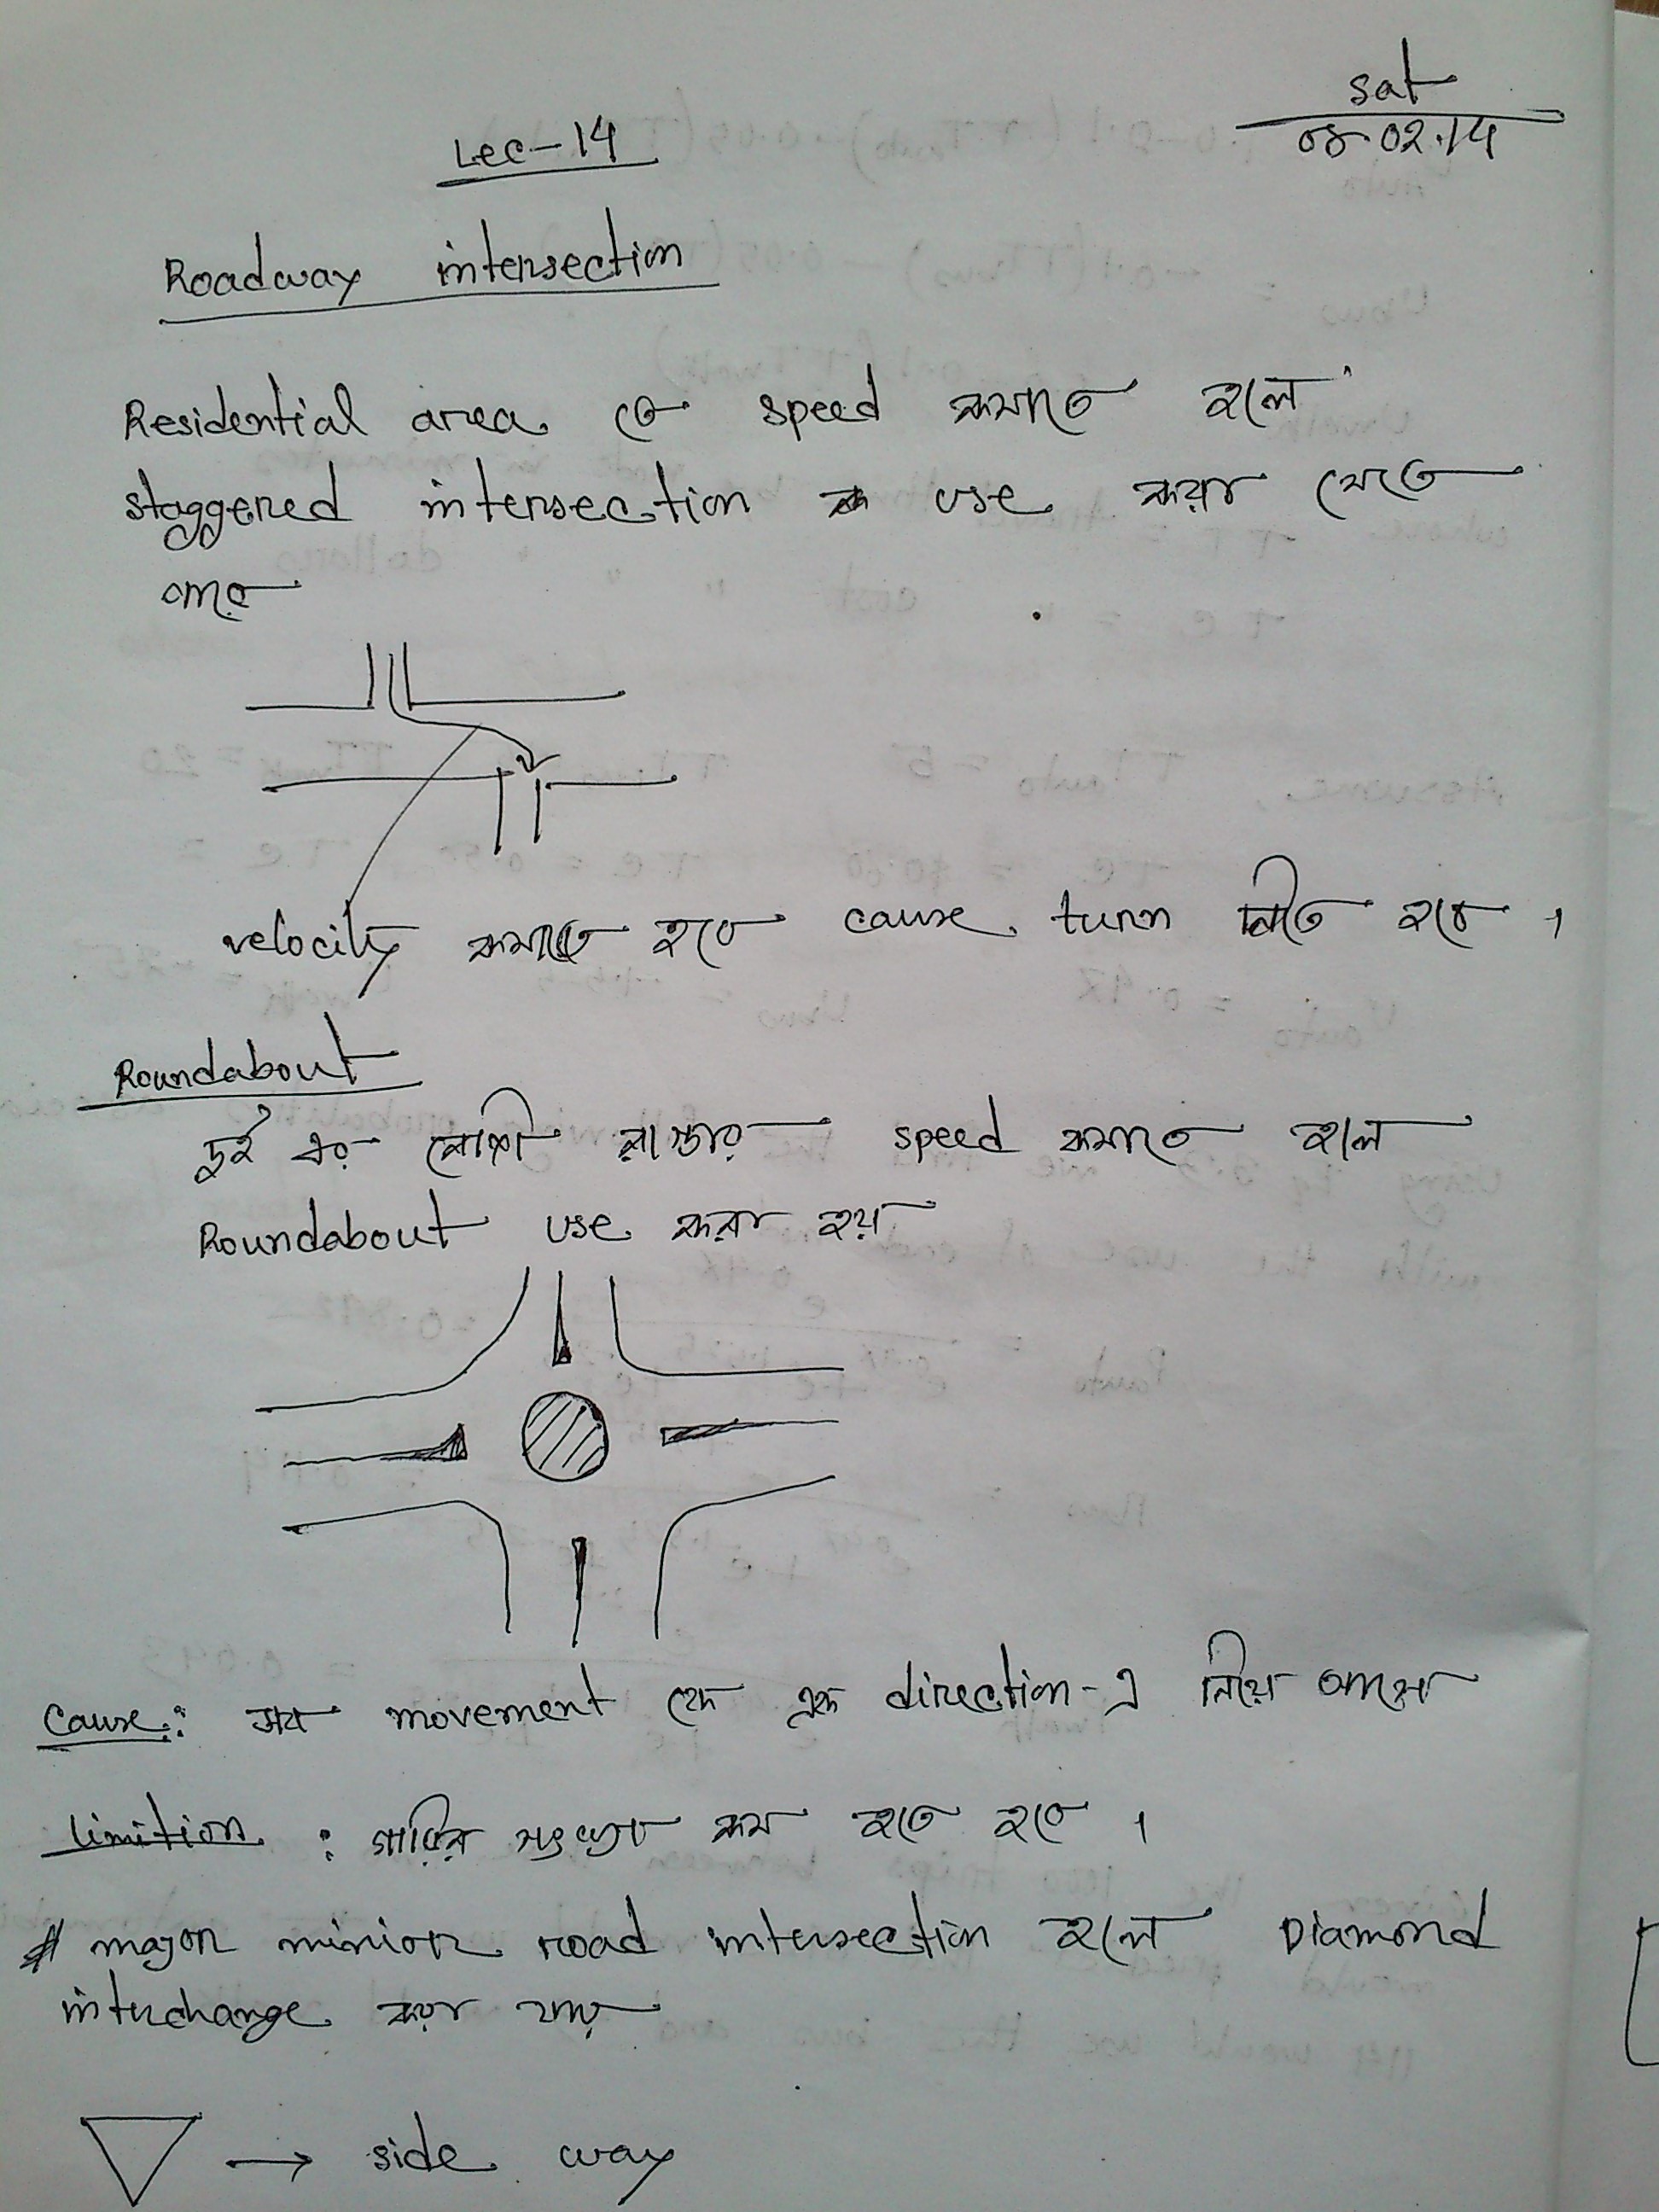 sat
08.02.14
Lec-14
Roadway intersection
Residential area তে speed কমাতে হলে
staggered intersection use করা যেতে
পারে
velocity কমাতে হবে cause turn নিতে হবে ।
Roundabout
দুই এর বেশী রাস্তার speed কমাতে হলে
Roundabout use করা হয়
Cause: সব movement কে এক direction-এ নিয়ে আসা
Limition : গাড়ির সংখ্যা কম হতে হবে ।
# major minior road intersection হলে Diamond
interchange করা যায়
→ side way